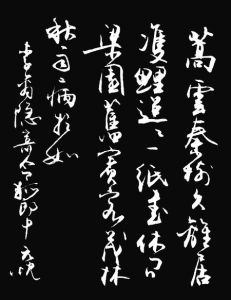 嵩雲秦樹久離居
雙鯉迢々一紙書休問
梁園舊賓客茂林
秋雨病相如
李商隱寄令狐郎中